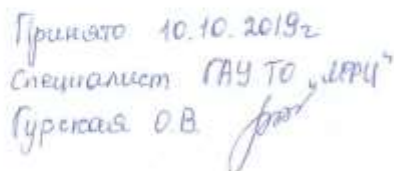 Принято 10.10.2019г
Специалист ГАУ ТО „МФЦ"
Гурская О.В.